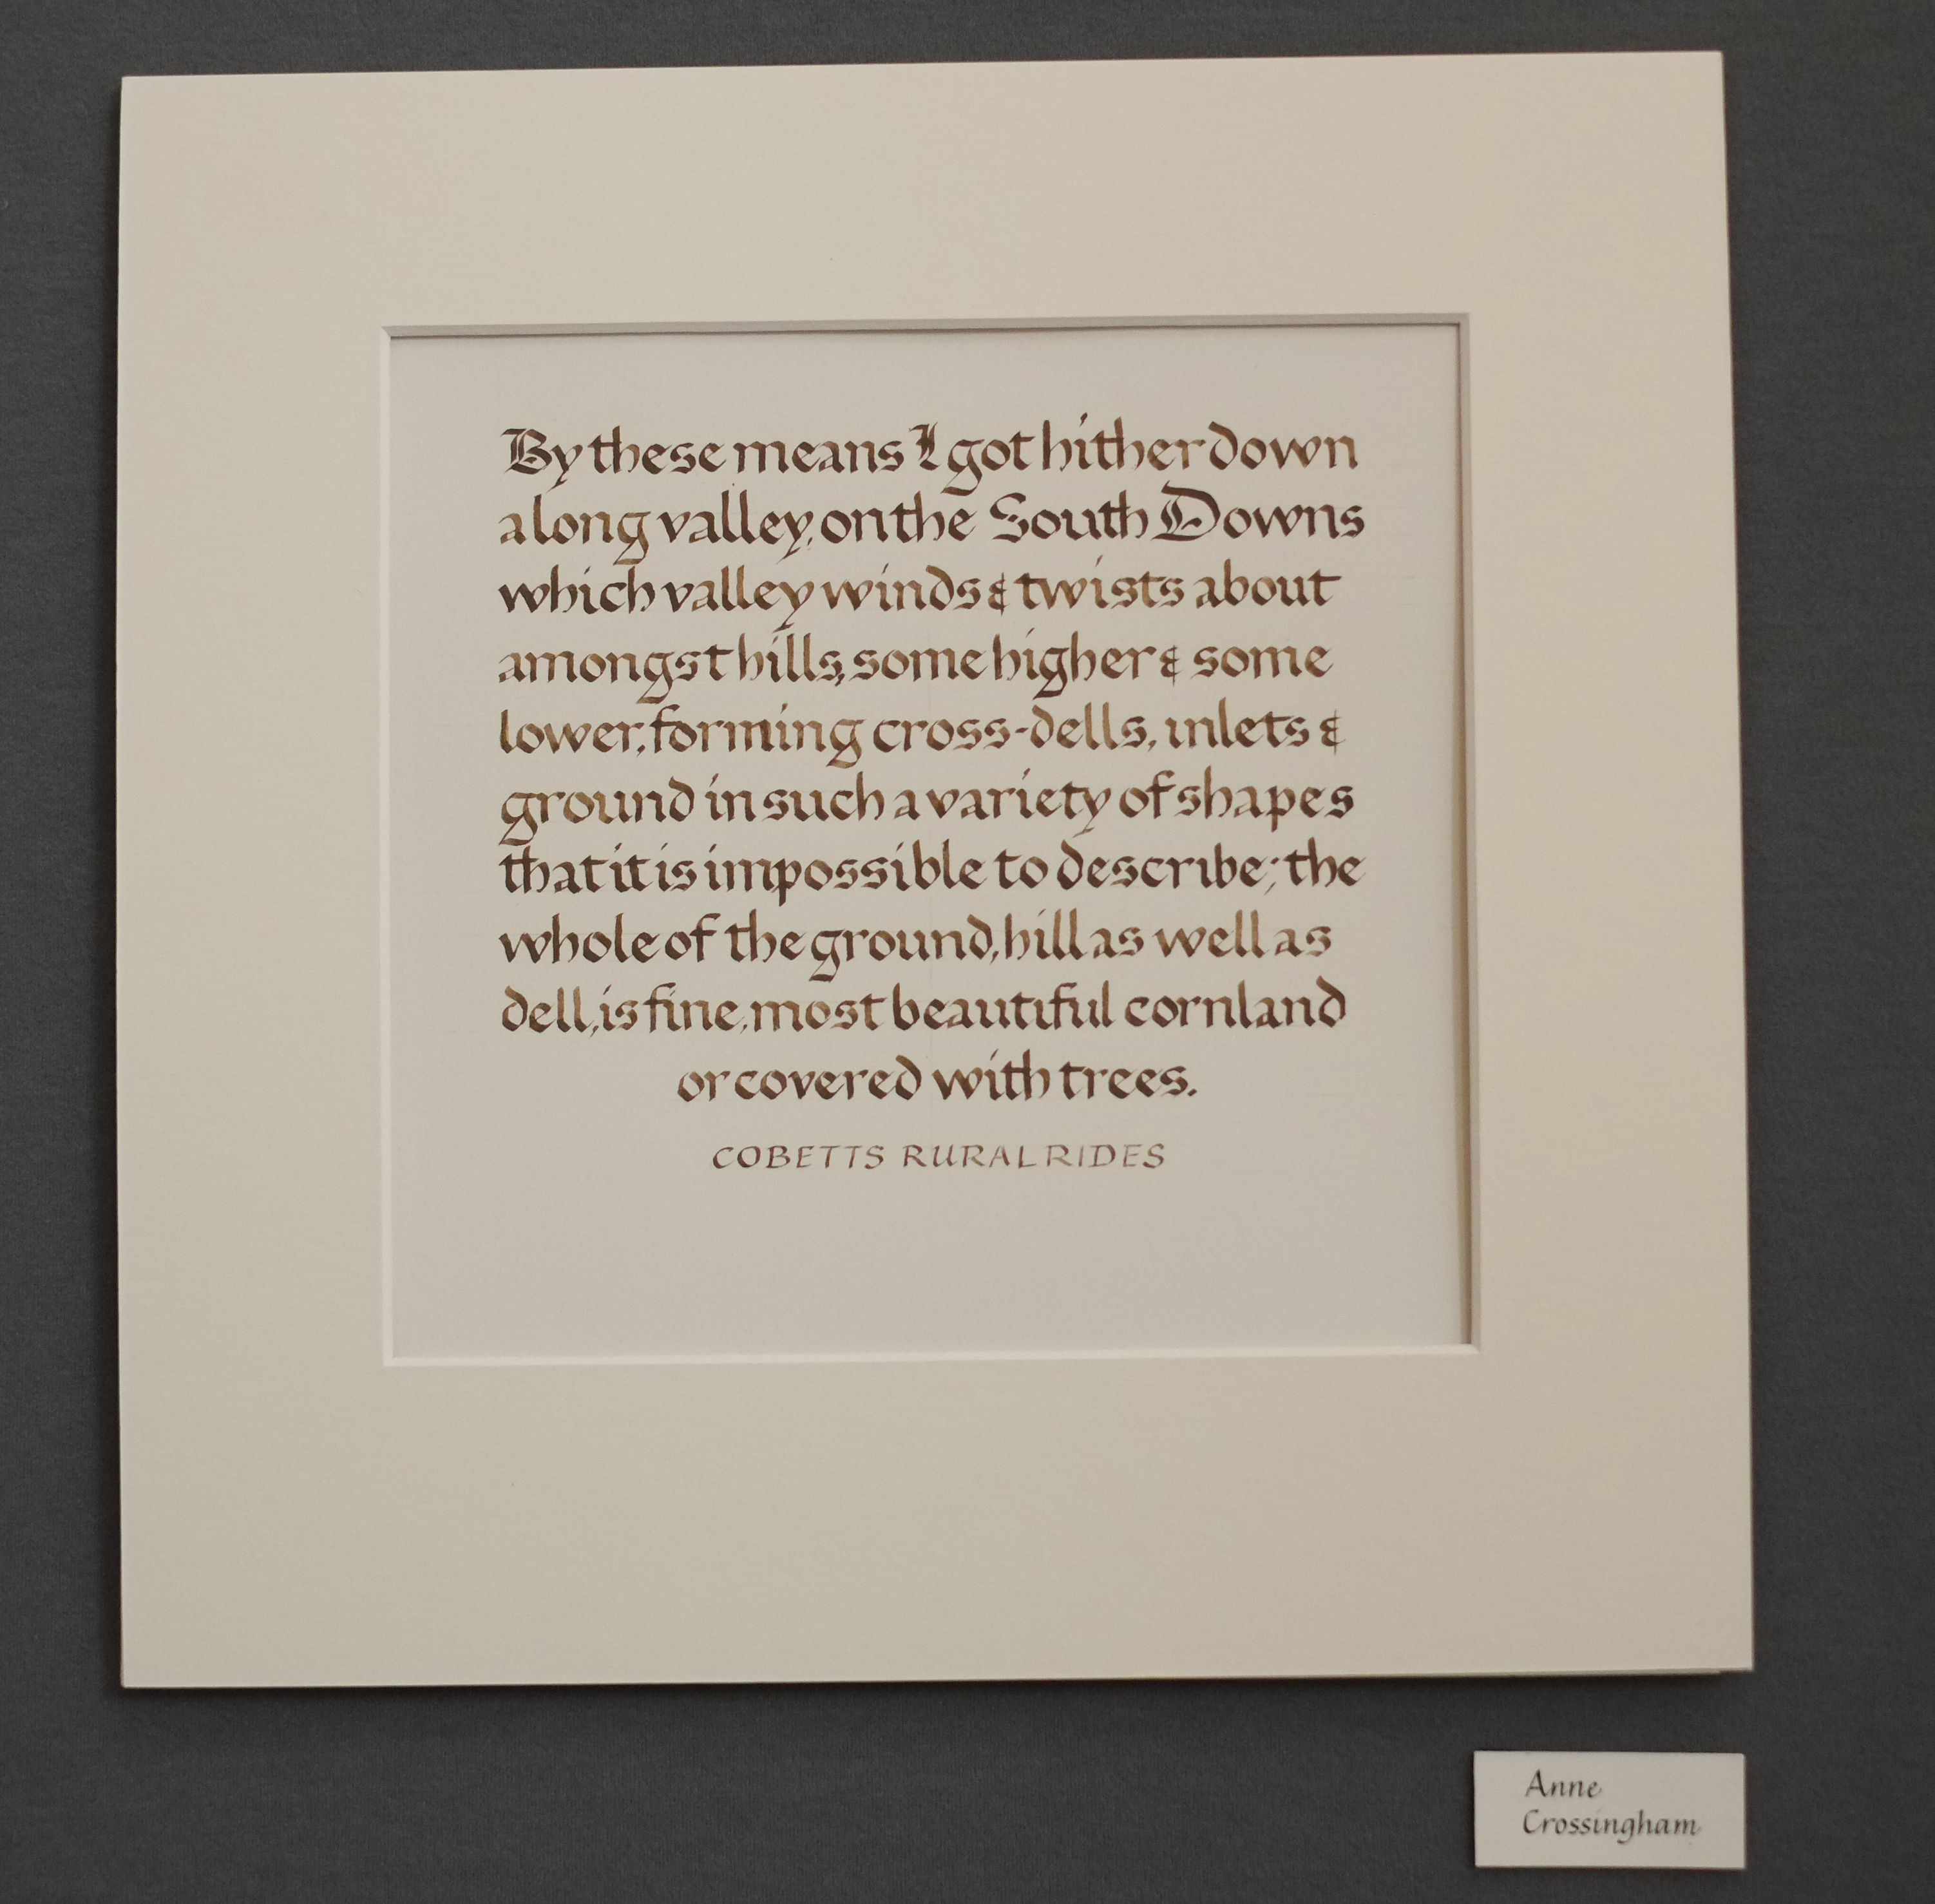 By these means I got hither down
a long valley, on the South Downs
which valley winds & twists about
amongst hills, some higher & some
lower, forming cross-dells, inlets &
ground in such a variety of shapes
that it is impossible to describe; the
whole of the ground, hill as well as
dell, is fine, most beautiful cornland
or covered with trees.
COBETTS RURAL RIDES
Anne
Crossingham